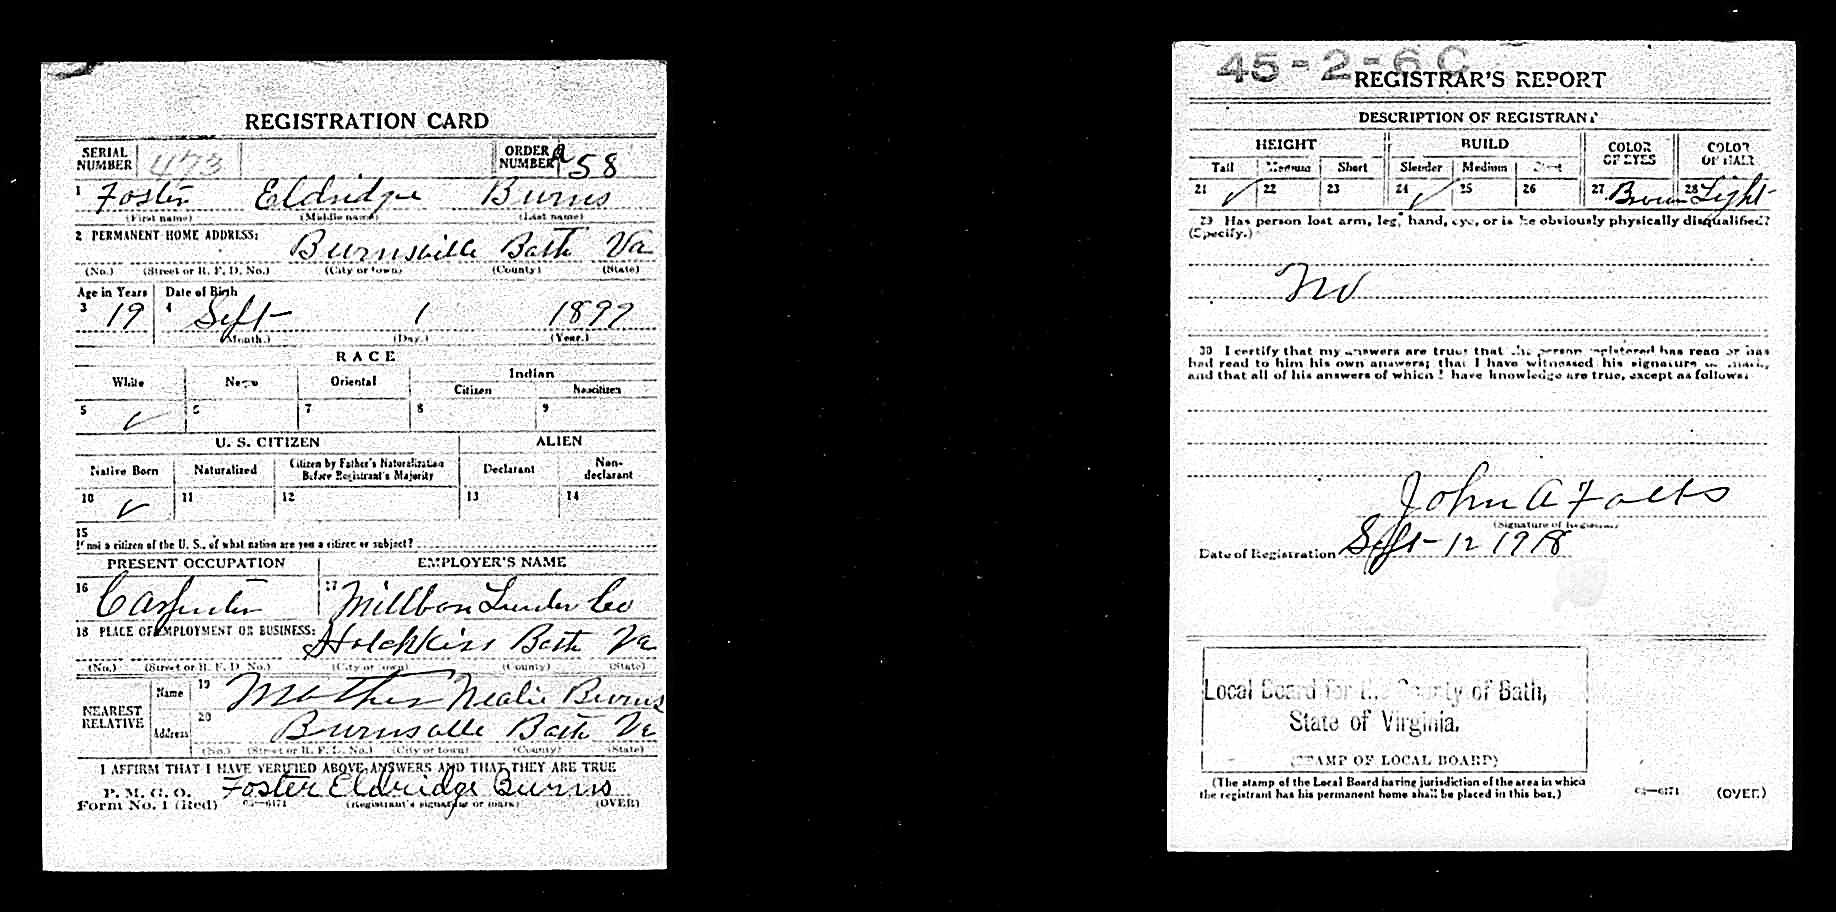 REGISTRATION CARD
SERIAL NUMBER 473 ORDER NUMBER A 58
1 Foster Eldridge Burns
(First name) (Middle name) (Last name)
2 PERMANENT HOME ADDRESS: Burnsville Bath Va
(No.) (Street or R. F. D. No.) (City or town) (County) (State)
Age in Years Date of Birth
3 19 4 Sept 1 1899
(Month.) (Day.) (Year.)
RACE
White Negro Oriental Indian
Citizen Noncitizen
5 ✓ 6 7 8 9
U. S. CITIZEN ALIEN
Native Born Naturalized Citizen by Father's Naturalization Before Registrant's Majority Declarant Non-declarant
10 ✓ 11 12 13 14
15
If not a citizen of the U. S., of what nation are you a citizen or subject?
PRESENT OCCUPATION EMPLOYER'S NAME
16 Carpenter 17 Lumber Co
18 PLACE OF EMPLOYMENT OR BUSINESS: Hotchkiss Bath Va
(No.) (Street or R. F. D. No.) (City or town) (County) (State)
NEAREST RELATIVE Name 19 Mother Nealie Burns
Address 20 Burnsville Bath Va
(No.) (Street or R. F. D. No.) (City or town) (County) (State)
I AFFIRM THAT I HAVE VERIFIED ABOVE ANSWERS AND THAT THEY ARE TRUE
P. M. G. O.
Form No. 1 (Red) 03—6171 Foster Eldridge Burns
(Registrant's signature or mark) (OVER)
45-2-6 C
REGISTRAR'S REPORT
DESCRIPTION OF REGISTRANT
HEIGHT BUILD COLOR OF EYES COLOR OF HAIR
Tall Medium Short Slender Medium Stout
21 ✓ 22 23 24 ✓ 25 26 27 Brown 28 Light
29 Has person lost arm, leg, hand, eye, or is he obviously physically disqualified?
(Specify.)
No
30 I certify that my answers are true; that the person registered has read or has
had read to him his own answers; that I have witnessed his signature or mark,
and that all of his answers of which I have knowledge are true, except as follows:
John A Folks
(Signature of Registrar)
Date of Registration Sept 12 1918
Local Board for the County of Bath,
State of Virginia.
(STAMP OF LOCAL BOARD)
(The stamp of the Local Board having jurisdiction of the area in which
the registrant has his permanent home shall be placed in this box.)
03—6171 (OVER)